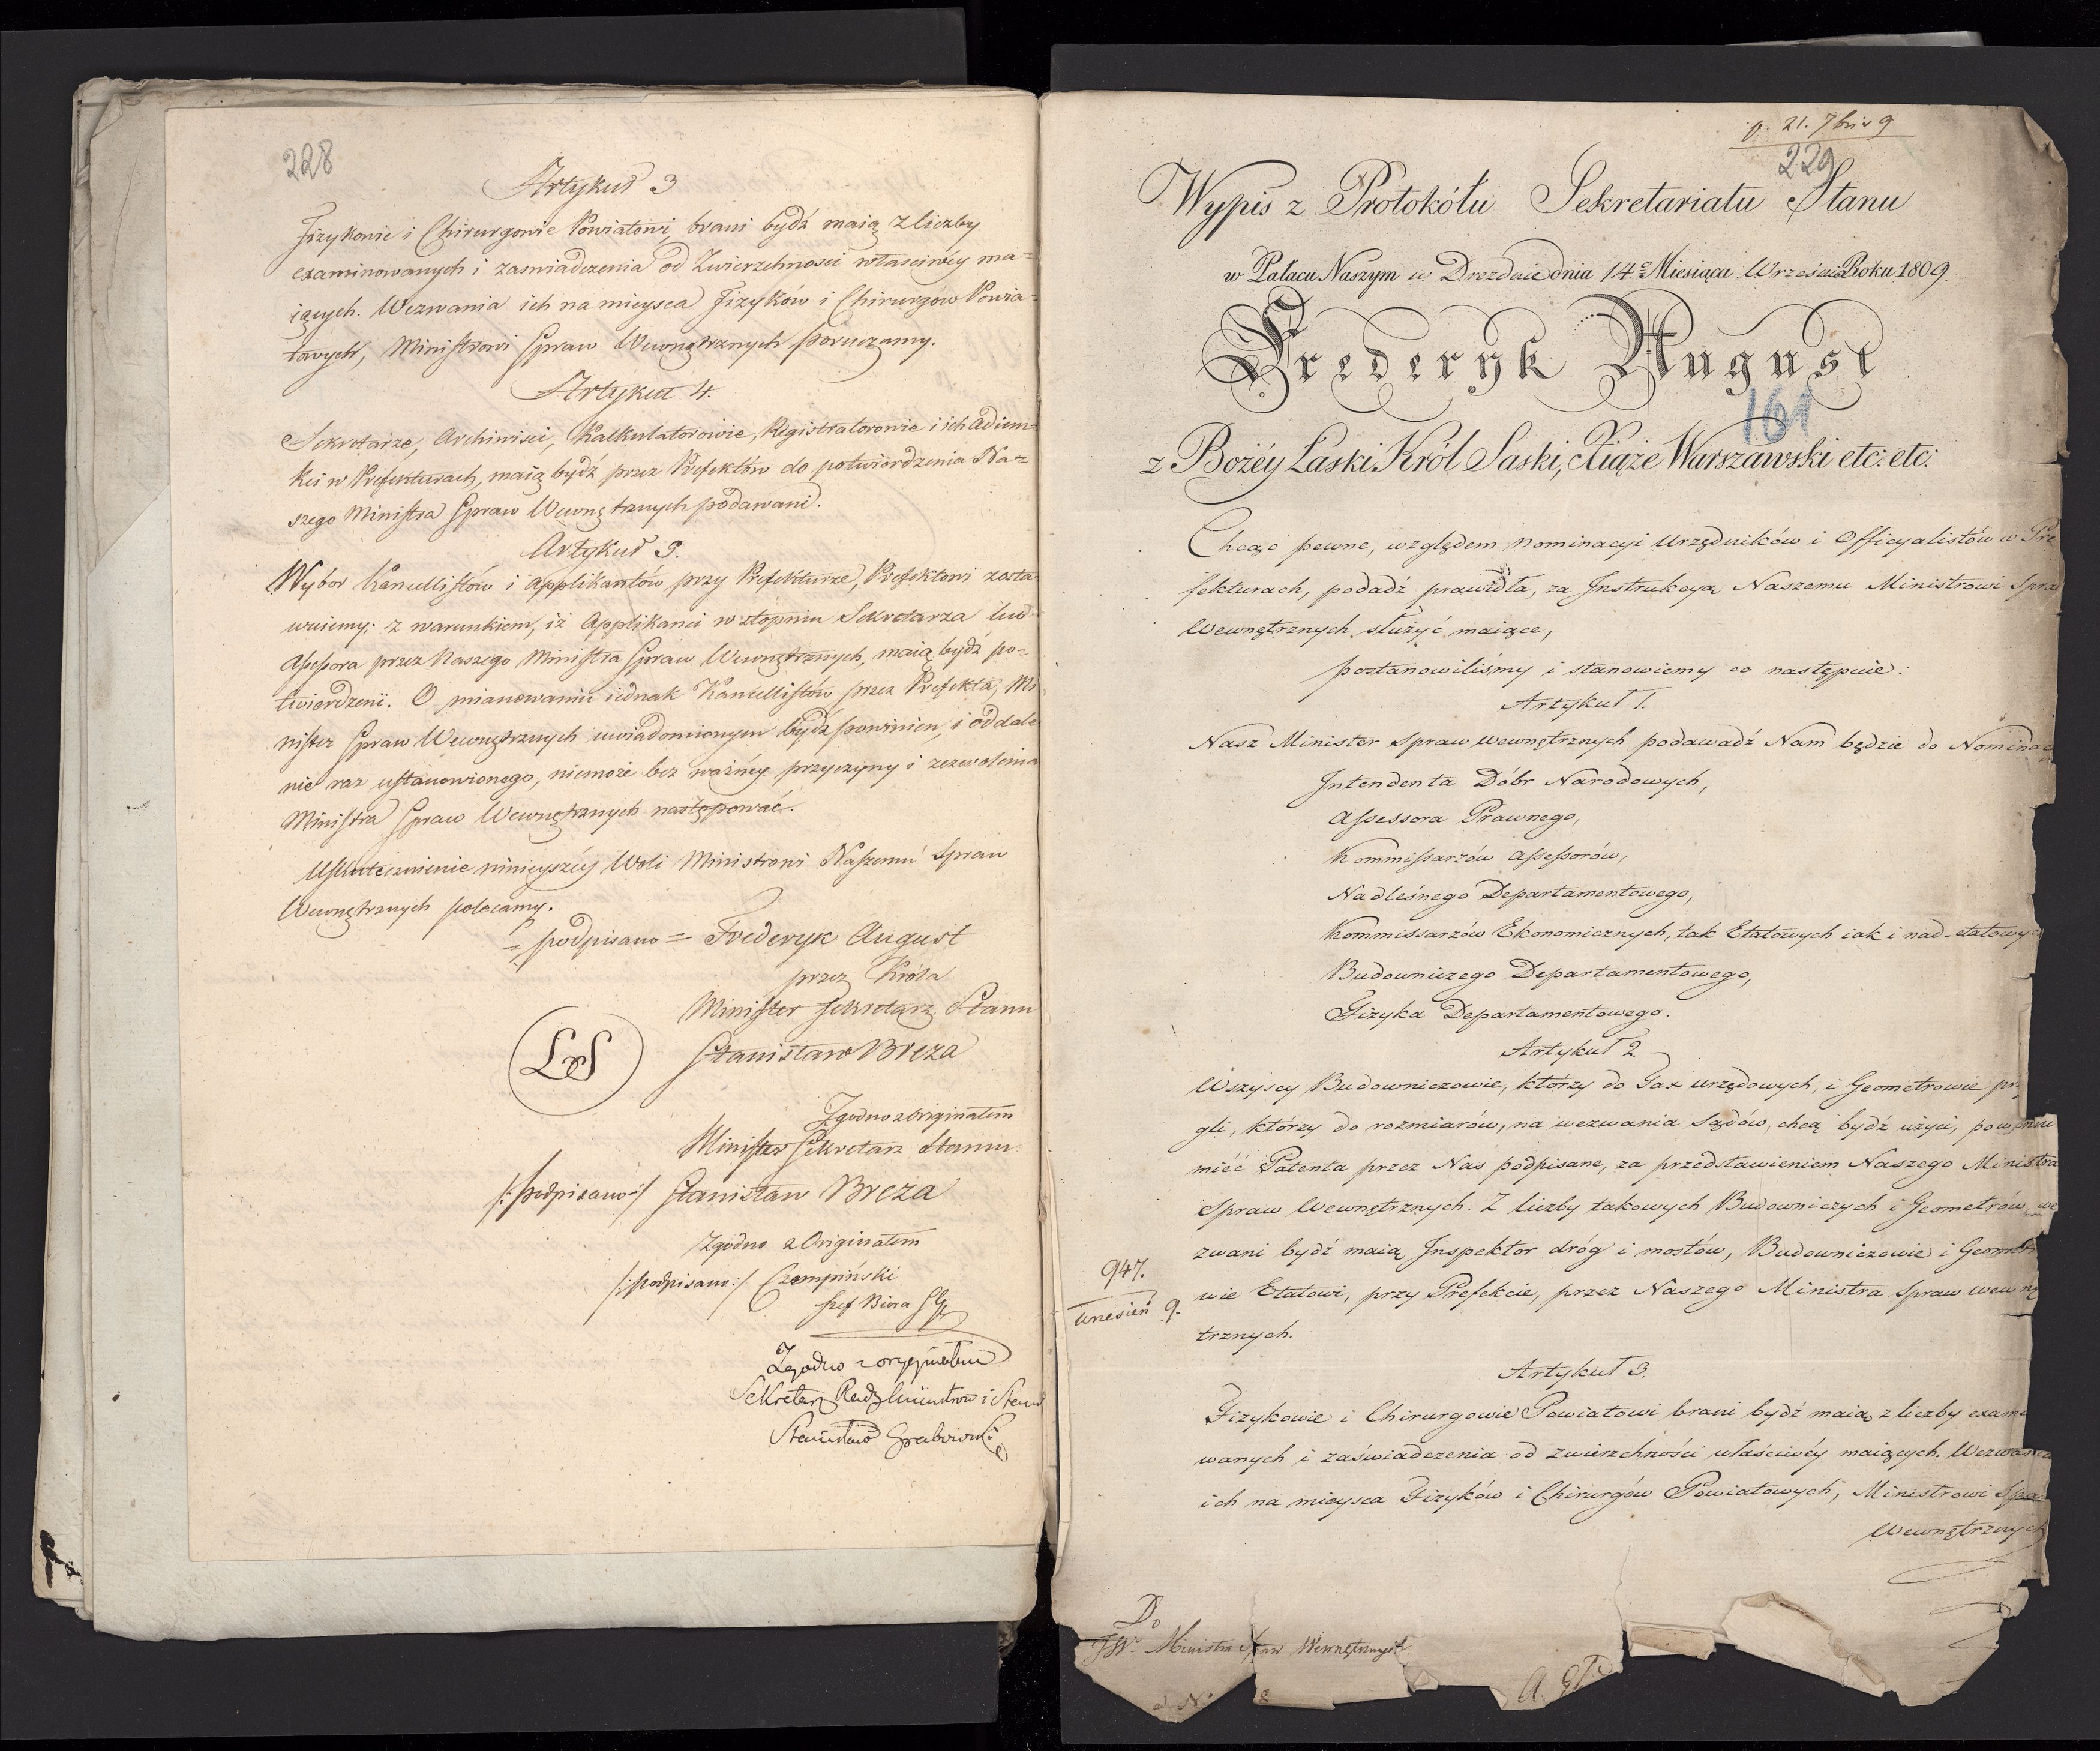 228
Artykuł 3
Fizykowie i Chirurgowie Powiatowi, brani bydź maią z liczby
examinowanych i zaswiadczenia od Zwierzchnosci własciwéy ma=
iących. Wezwania ich na mieysca Fizyków i Chirurgów Powia=
towych, Ministrowi Spraw Wewnętrznych poruczamy.
Artykuł 4.
Sekretarze, Archiwisci, Kalkulatorowie, Registratorowie i ich Adiun=
kci w Prefekturach, maią bydź przez Prefektów do potwierdzenia Na=
szego Ministra Spraw Wewnętrznych podawani.
Artykuł 5.
Wybor Kancellistów i Applikantów przy Prefekturze, Prefektowi zosta
wuiemy; z warunkiem, iż Applikanci w stopniu Sekretarza lub
Assessora przez Naszego Ministra Spraw Wewnętrznych, maią bydź po=
twierdzeni. O mianowaniu iednak Kancellistów przez Prefekta, Mi
nister Spraw Wewnętrznych uwiadomionym bydź powinien, i oddale
nie raz ustanowionego, niemoże bez ważnéy przyczyny i zezwolenia
Ministra Spraw Wewnętrznych następować.
Uskutecznienie ninieyszéy Woli Ministrowi Naszemu Spraw
Wewnętrznych polecamy.
podpisano = Frederyk August
przez Króla
Minister Sekretarz Stanu
LS Stanisław Breza
Zgodno z Originałem
Minister Sekretarz Stanu
/:podpisano:/ Stanisław Breza
Zgodno z Originałem
/:podpisano:/ Czempiński
Szef Biora
Zgodno z oryginałem
Sekretarz Rady Ministrów i Stanu
Stanisław Grabowski
p. 21. 7bris 9
229
Wypis z Protokółu Sekretariatu Stanu
w Pałacu Naszym w Dreznie dnia 14.o Miesiąca Września Roku 1809.
Frederyk August
161
z Bożéy Łaski Król Saski, Xiąże Warszawski etc: etc:
Chcąc pewne, względem nominacyi Urzędników i Officyalistów w Pre
fekturach, podadź prawidła, za Instrukcyą Naszemu Ministrowi Spra
Wewnętrznych służyć maiące,
postanowiliśmy i stanowiemy co następuie:
Artykuł 1.
Nasz Minister Spraw Wewnętrznych podawadź Nam będzie do Nominac
Intendenta Dóbr Narodowych,
Assessora Prawnego,
Kommissarzów Assessorów,
Nadleśnego Departamentowego,
Kommissarzów Ekonomicznych, tak Etatowych iak i nad-etatowy
Budowniczego Departamentowego,
Fizyka Departamentowego.
Artykuł 2.
Wszyscy Budowniczowie, którzy do Tax urzędowych, i Geometrowie prz
gli, którzy do rozmiarów, na wezwania Sądów, chcą bydź użyci, powinni
mieć Patenta przez Nas podpisane, za przedstawieniem Naszego Ministra
Spraw Wewnętrznych. Z liczby takowych Budowniczych i Geometrów, we
zwani bydź maią Inspektor dróg i mostów, Budowniczowie i Geometro
wie Etatowi, przy Prefekcie, przez Naszego Ministra Spraw wewnę
trznych.
947.
wresień 9.
Artykuł 3.
Fizykowie i Chirurgowie Powiatowi brani bydź maią z liczby exami
wanych i zaświadczenia od zwierzchności właściwéy maiących. Wezwania
ich na mieysca Fizyków i Chirurgów Powiatowych, Ministrowi Spra
Wewnętrznych
Do
JW. Ministra Spraw Wewnętrznych